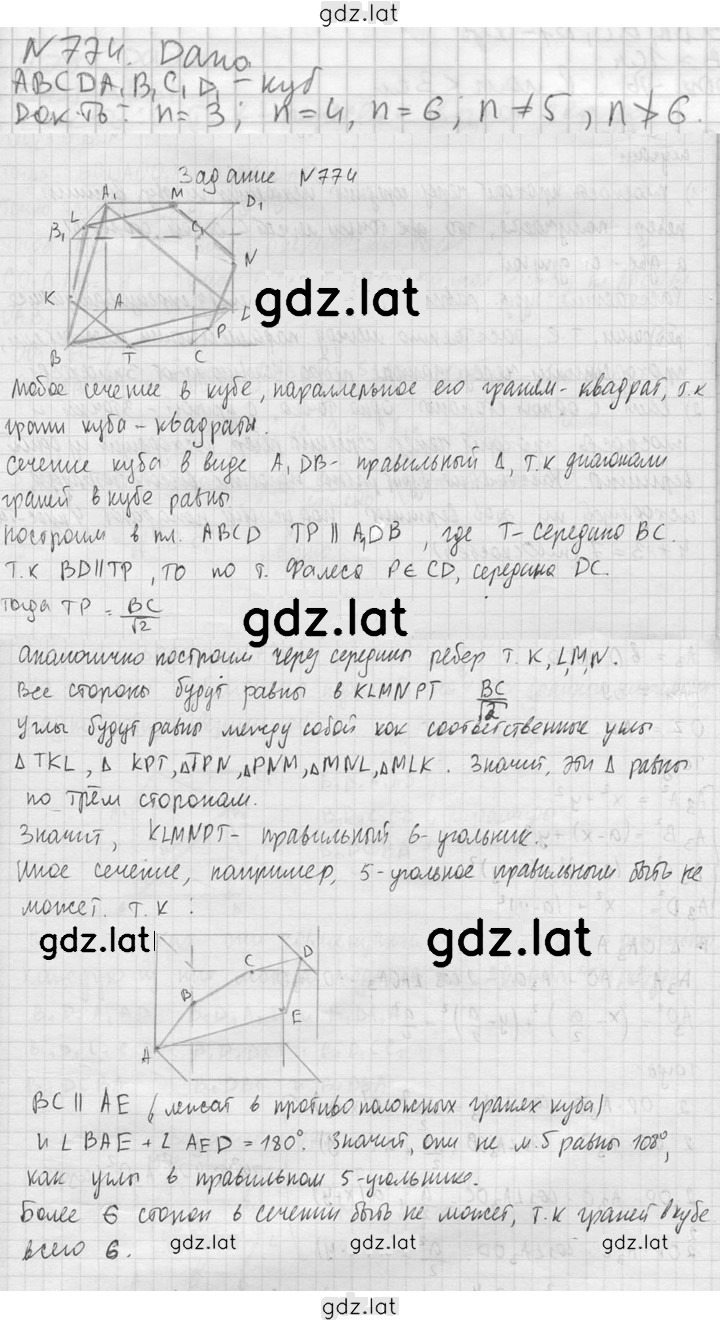 gdz.lat
N774. Дано
ABCDA₁B₁C₁D₁ - куб
Док-ть: n = 3; n = 4, n = 6; n ≠ 5, n ≯ 6.
Задание N774
A₁ M D₁
L
B₁ C₁
N
K A
gdz.lat
P
B T C
Любое сечение в кубе, параллельное его граням - квадрат, т.к
грани куба - квадраты.
Сечение куба в виде A₁DB - правильный Δ, т.к диагонали
граней в кубе равны
Построим в пл. ABCD TP || A₁DB, где T - середина BC.
Т.к BD || TP, то по т. Фалеса P ∈ CD, середина DC.
Тогда TP = BC/√2
gdz.lat
Аналогично построим через середины ребер т. K, L, M, N.
Все стороны будут равны в KLMNPT BC/√2
Углы будут равны между собой как соответственные углы
Δ TKL, Δ KPT, Δ TPN, Δ PNM, Δ MNL, Δ MLK. Значит, эти Δ равны
по трём сторонам.
Значит, KLMNPT - правильный 6-угольник.
Иное сечение, например, 5-угольное правильным быть не
может. т.к :
gdz.lat gdz.lat
C D
B
E
A
BC || AE (лежат в противоположных гранях куба)
и ∠ BAE + ∠ AED = 180°. Значит, они не м.б равны 108°,
как углы в правильном 5-угольнике.
Более 6 сторон в сечении быть не может, т.к граней в кубе
всего 6.
gdz.lat gdz.lat
gdz.lat